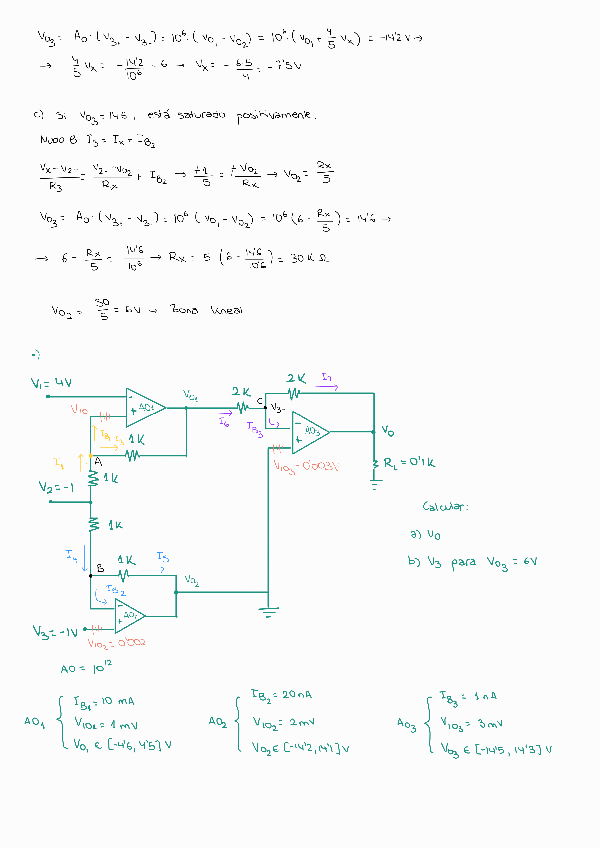 V03 = A0·(V3+ - V3-) = 10⁶·(V01 - V02) = 10⁶·(V01 + 4/5 Vx) = -14'2V →
→ 4/5 Vx = -14'2/10⁶ - 6 → Vx = -6·5/4 = -7'5V
c) Si V03 = 14'6, está saturado positivamente.
Nudo B I3 = Ix + IB2
Vx - V2-/R3 = V2- - V02/Rx + IB2 → +1/5 = +V02/Rx → V02 = Rx/5
V03 = A0·(V3+ - V3-) = 10⁶(V01 - V02) = 10⁶(6 - Rx/5) = 14'6 →
→ 6 - Rx/5 = 14'6/10⁶ → Rx = 5(6 - 14'6/10⁶) = 30 KΩ
V02 = 30/5 = 6V → Zona lineal
V1 = 4V
V01
2K
2K
I7
V10
AO1
I6
C
V3-
IB3
AO3
V0
I1
IB1
I3
1K
A
V103 = 0'003V
RL = 0'1K
V2 = -1
1K
1K
Calcular:
a) V0
b) V3 para V03 = 6V
I4
B
1K
I5
V02
IB2
AO1
V3 = -1V
V102 = 0'002
AO = 10¹²
AO1 { IB1 = 10 mA
V101 = 1 mV
V01 ∈ [-4'6, 4'5] V
AO2 { IB2 = 20 nA
V102 = 2 mV
V02 ∈ [-14'2, 14'1] V
AO3 { IB3 = 1 nA
V103 = 3 mV
V03 ∈ [-14'5, 14'3] V